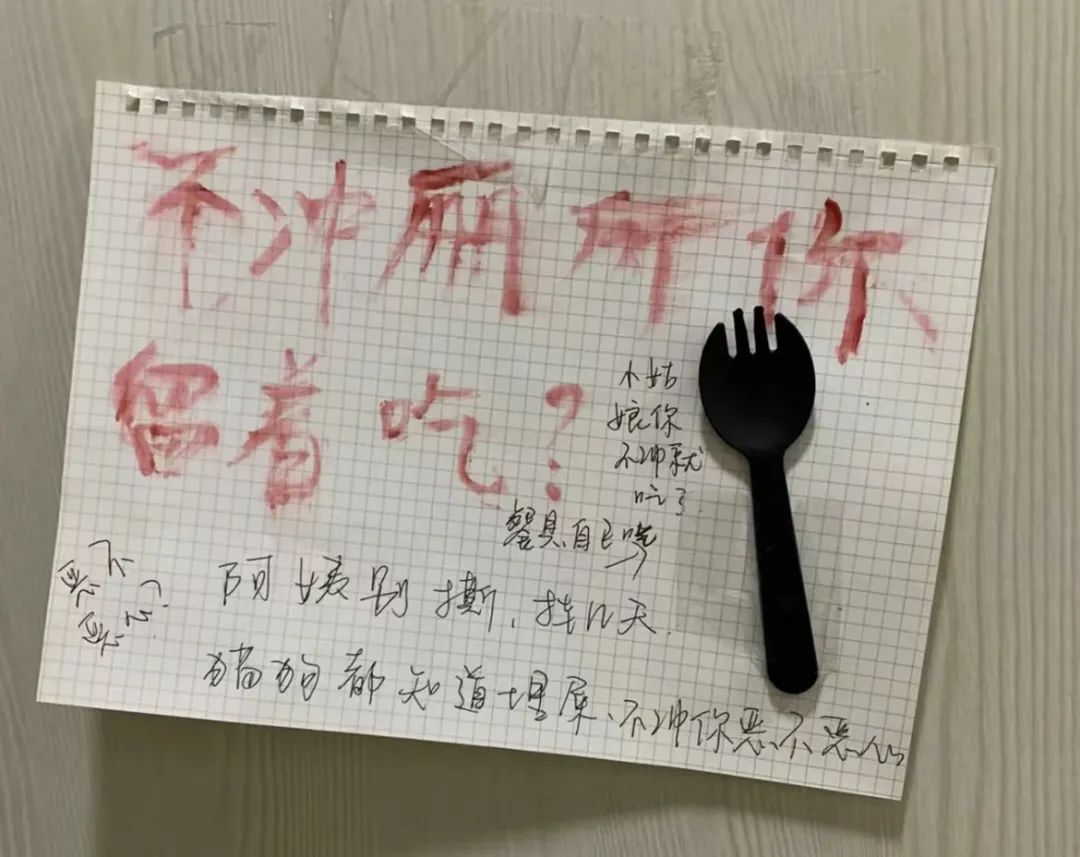 不冲厕所你
留着吃？
小姑
娘你
不冲就
吃了
餐具自己吃
恶不
恶心？
阿姨别撕，挂几天.
猫狗都知道埋屎、不冲你恶不恶心